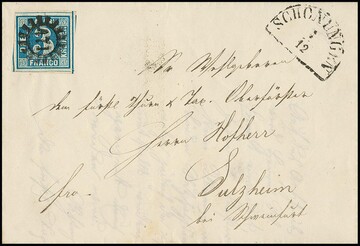 FRANCO
SCHONUNGEN
1
12
Sr. Wohlgeboren
dem fürstl Thurn & Tax. Oberförster
Herrn Hofherr
fro.
Sulzheim
bei Schweinfurt